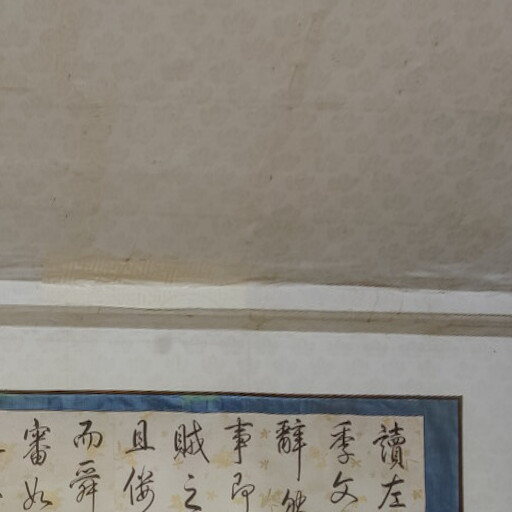 讀左
季文
辭
事即
賊之
且偻
而舜
審如